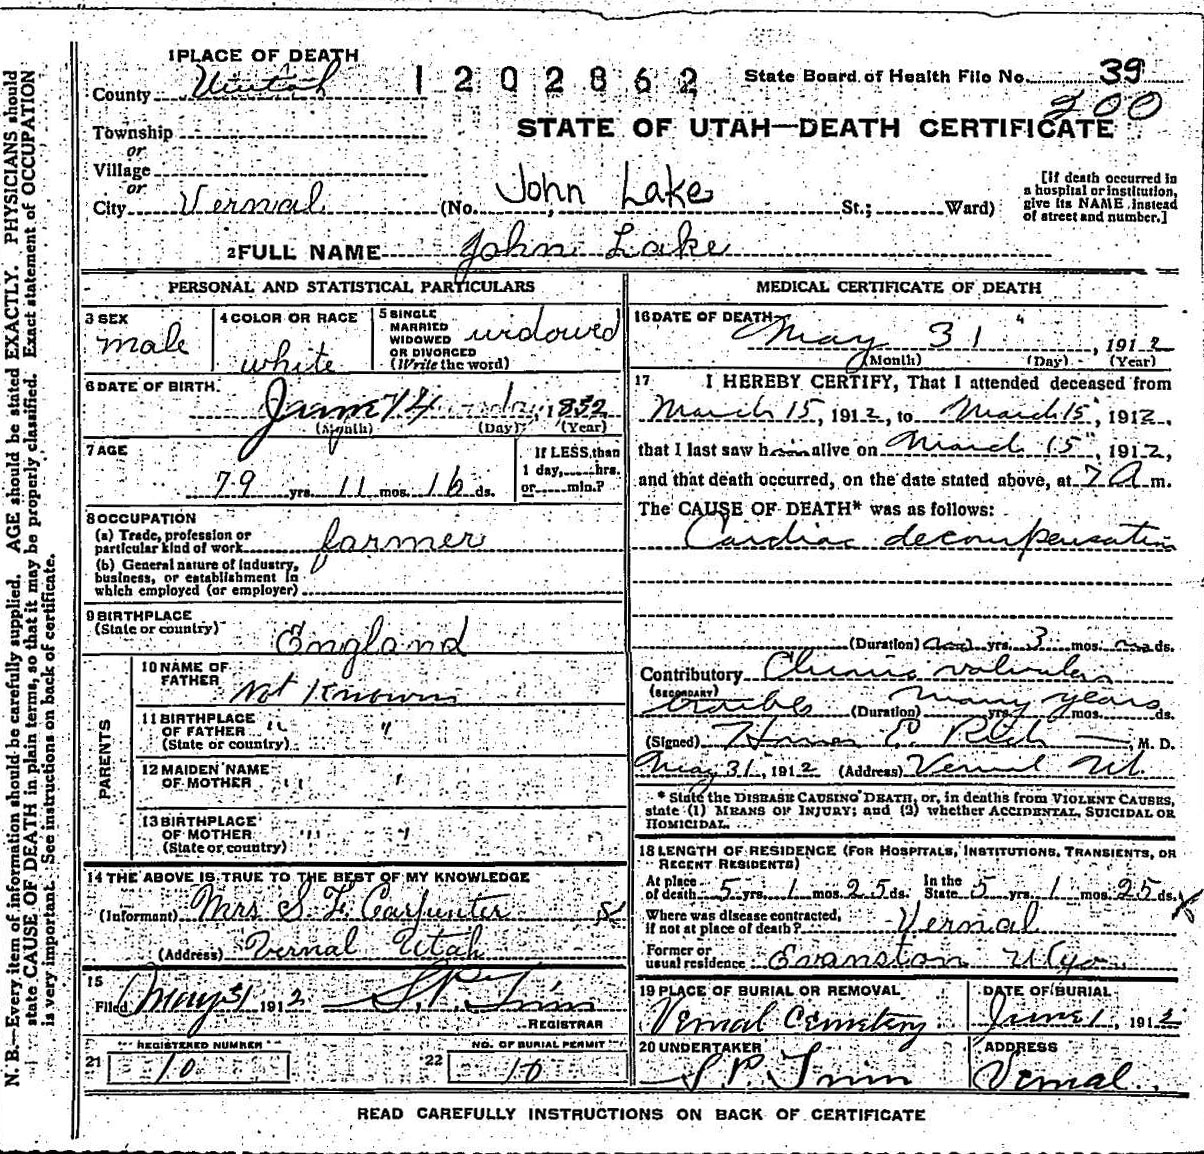 1 PLACE OF DEATH
County Uintah
1202862
State Board of Health File No. 39
200
Township
or
Village
or
City Vernal
STATE OF UTAH—DEATH CERTIFICATE
(No. John Lake St.; Ward)
[If death occurred in
a hospital or institution,
give its NAME instead
of street and number.]
2 FULL NAME John Lake
PERSONAL AND STATISTICAL PARTICULARS
3 SEX
male
4 COLOR OR RACE
white
5 SINGLE
MARRIED
WIDOWED
OR DIVORCED
(Write the word)
widowed
6 DATE OF BIRTH
14 1832
(Month) (Day) (Year)
7 AGE
79 yrs. 11 mos. 16 ds.
If LESS than
1 day, hrs.
or min.?
8 OCCUPATION
(a) Trade, profession or
particular kind of work farmer
(b) General nature of industry,
business, or establishment in
which employed (or employer)
9 BIRTHPLACE
(State or country) England
PARENTS
10 NAME OF
FATHER Not Known
11 BIRTHPLACE
OF FATHER " "
(State or country)
12 MAIDEN NAME
OF MOTHER " "
13 BIRTHPLACE
OF MOTHER " "
(State or country)
14 THE ABOVE IS TRUE TO THE BEST OF MY KNOWLEDGE
(Informant) Mrs S. F. Carpenter
(Address) Vernal Utah
15
Filed May 31 1912 S.P.
REGISTRAR
REGISTERED NUMBER
21 10
NO. OF BURIAL PERMIT
22 10
MEDICAL CERTIFICATE OF DEATH
16 DATE OF DEATH
May 31, 1912
(Month) (Day) (Year)
17 I HEREBY CERTIFY, That I attended deceased from
March 15, 1912, to March 15, 1912,
that I last saw him alive on March 15", 1912,
and that death occurred, on the date stated above, at 7 A m.
The CAUSE OF DEATH* was as follows:
Cardiac decompensation
(Duration) yrs. 3 mos. ds.
Contributory Chronic valvular
(SECONDARY)
trouble (Duration) many years yrs. mos. ds.
(Signed) Homer E. Rich, M. D.
May 31, 1912 (Address) Vernal Ut.
* State the DISEASE CAUSING DEATH, or, in deaths from VIOLENT CAUSES,
state (1) MEANS OF INJURY; and (2) whether ACCIDENTAL, SUICIDAL OR
HOMICIDAL.
18 LENGTH OF RESIDENCE (FOR HOSPITALS, INSTITUTIONS, TRANSIENTS, OR
RECENT RESIDENTS)
At place
of death 5 yrs. 1 mos. 25 ds.
In the
State 5 yrs. 1 mos. 25 ds. X
Where was disease contracted,
if not at place of death? Vernal
Former or
usual residence Evanston Wyo.
19 PLACE OF BURIAL OR REMOVAL
Vernal Cemetery
DATE OF BURIAL
June 1, 1912
20 UNDERTAKER
S.P.
ADDRESS
Vernal
READ CAREFULLY INSTRUCTIONS ON BACK OF CERTIFICATE
N. B.—Every item of information should be carefully supplied. AGE should be stated EXACTLY. PHYSICIANS should
state CAUSE OF DEATH in plain terms, so that it may be properly classified. Exact statement of OCCUPATION
is very important. See instructions on back of certificate.